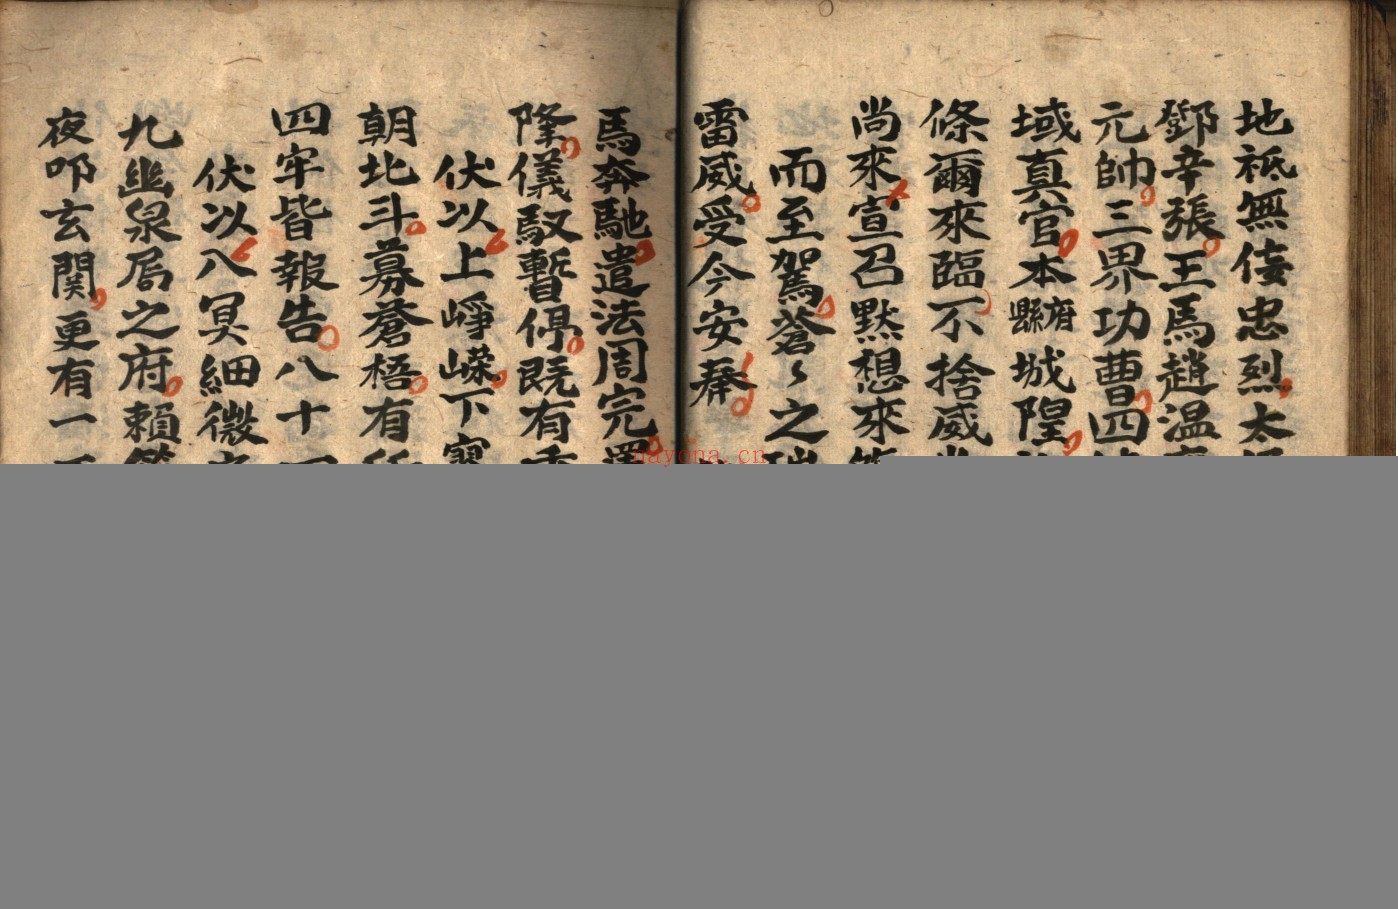 地祇無佞忠烈太
鄧辛張王馬趙温
元帥三界功曹四
域真官本府縣城隍
倏爾來臨不捨威
尚來宣召默想來
而至駕蒼〻之
雷威受今安奉
馬奔馳遣法周完
隆儀馭暫停既有
伏以上崢嶸下
朝北斗募蒼梧有
四牢皆報告八十
伏以八冥細微
九幽泉扃之府賴
夜叩玄関更有一
nayona.cn